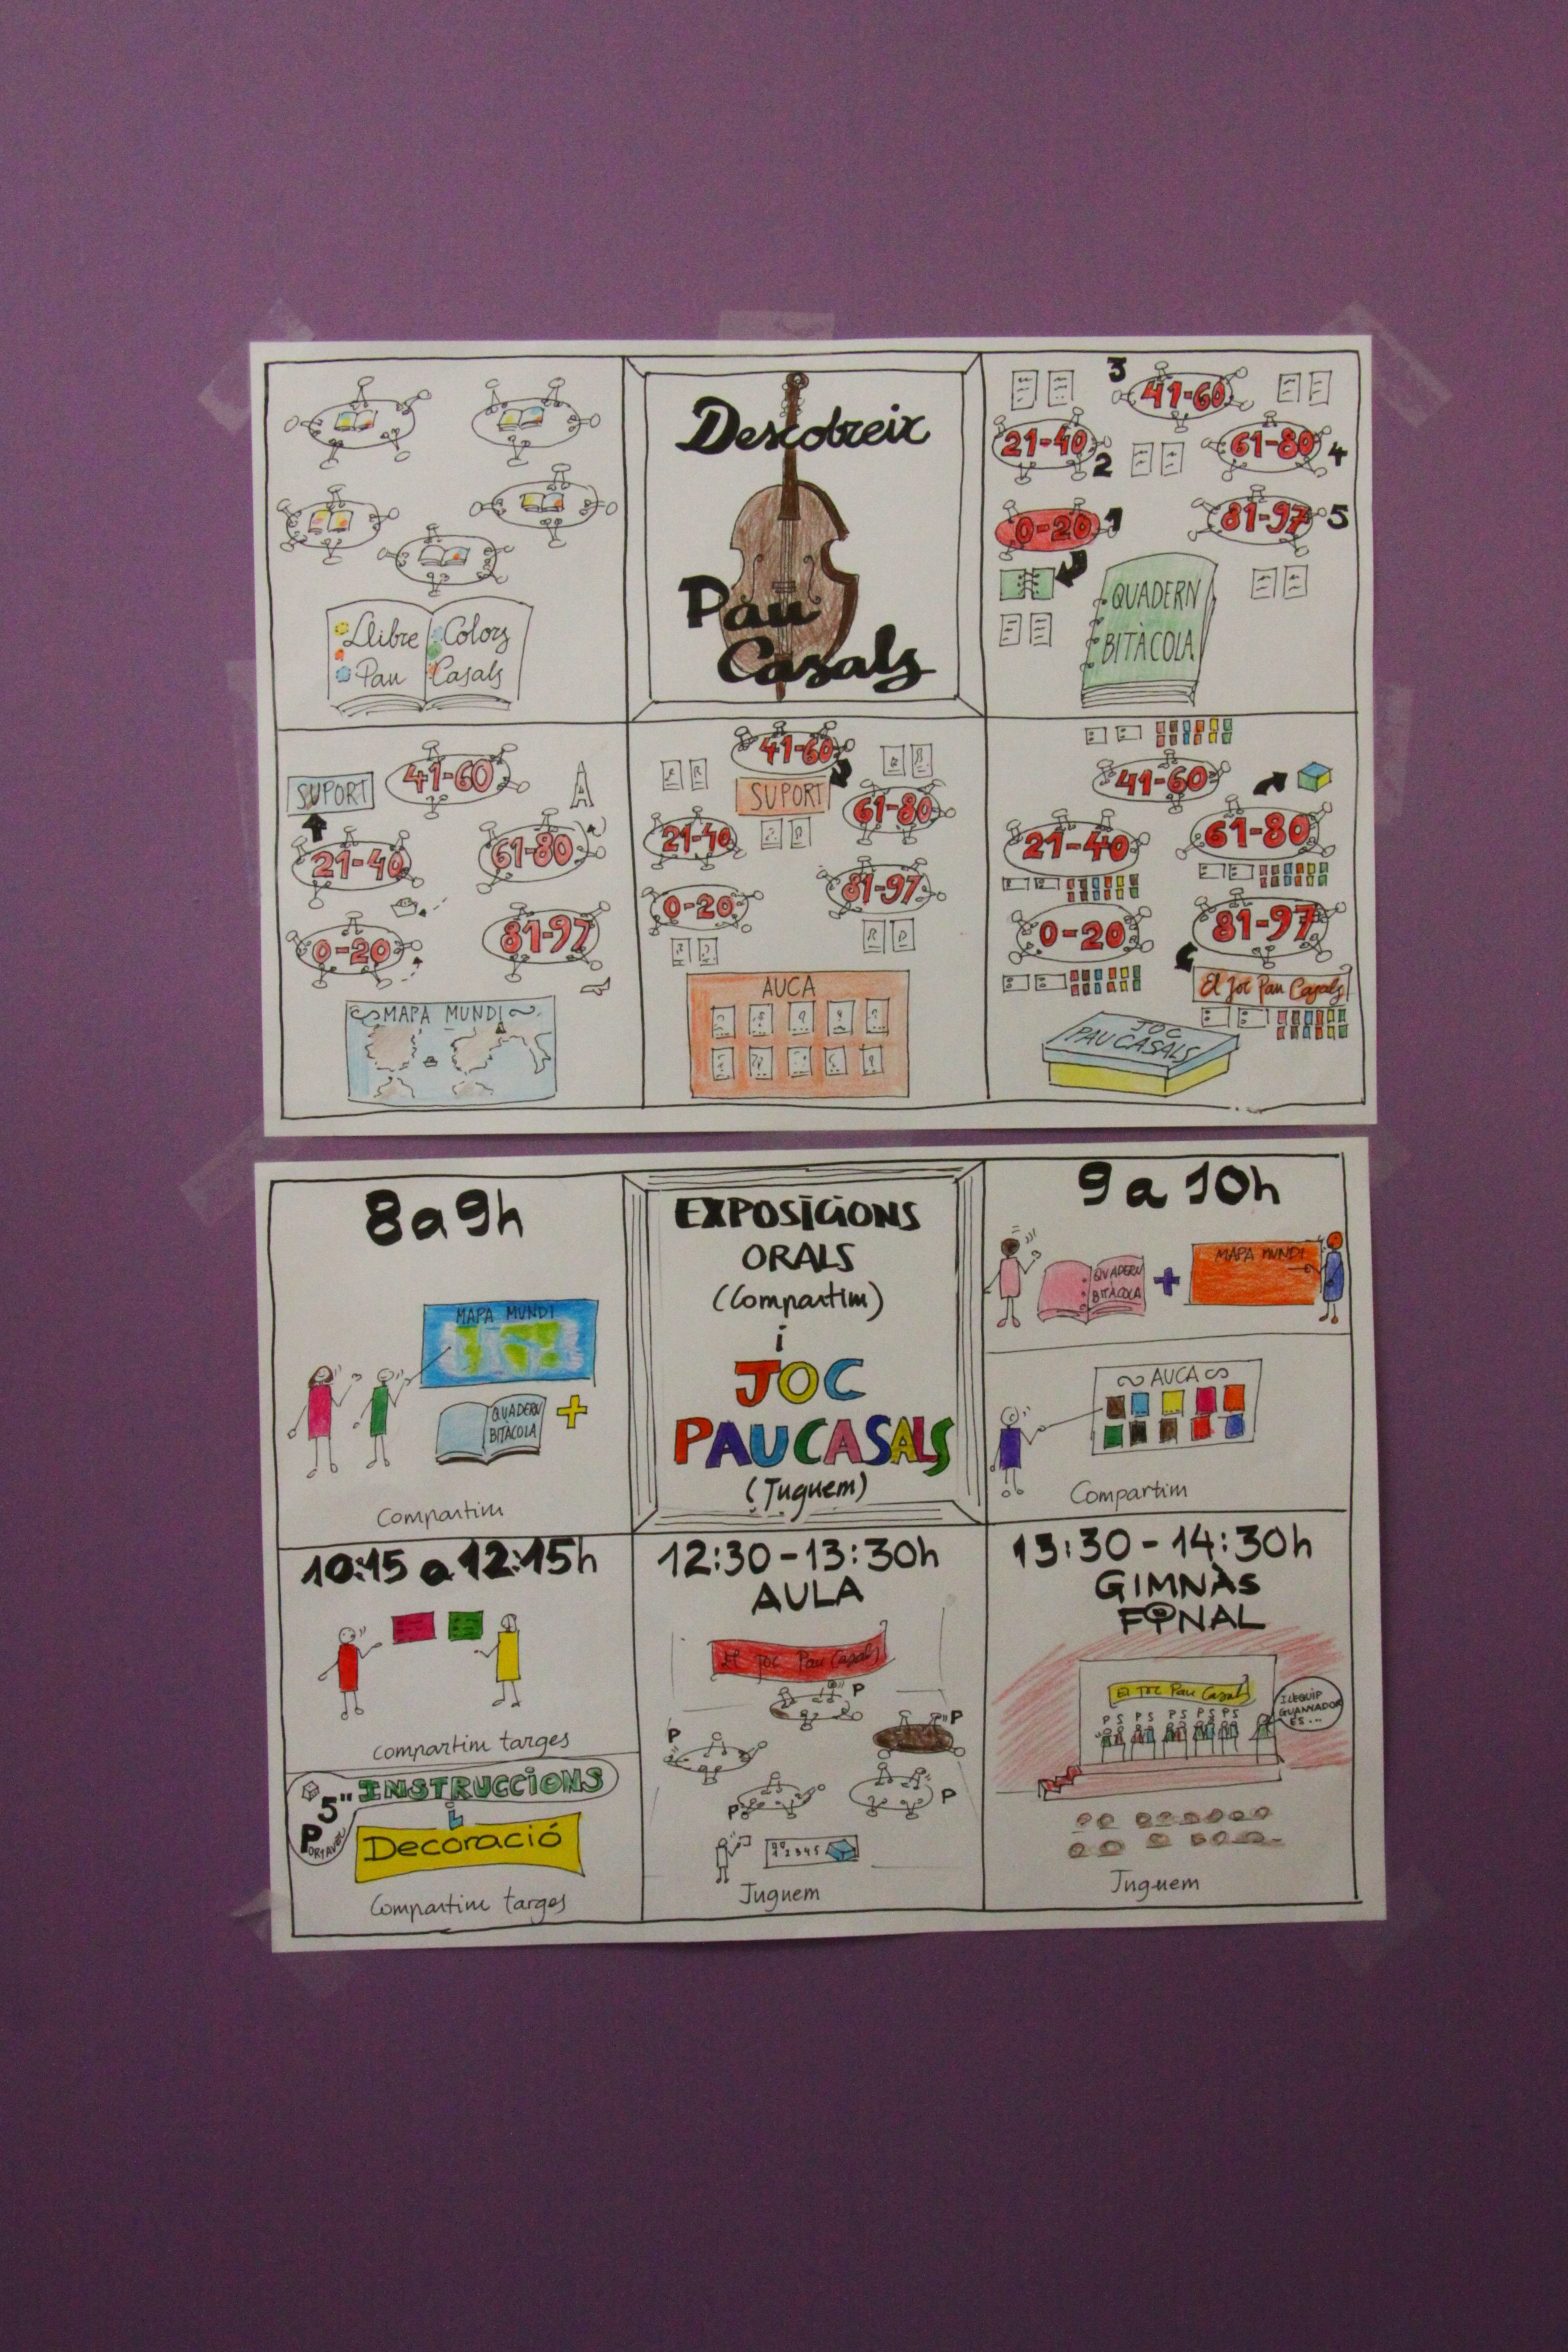 Llibre Colors
Pau Casals
Descobreix
Pau
Casals
3
41-60
21-40
2
61-80
4
0-20
1
81-97
5
QUADERN
BITÀCOLA
41-60
SUPORT
21-40
61-80
0-20
81-97
MAPA MUNDI
41-60
SUPORT
61-80
21-40
81-97
0-20
AUCA
41-60
21-40
61-80
0-20
81-97
El Joc Pau Casals
JOC
PAU CASALS
8 a 9h
MAPA MUNDI
QUADERN
BITÀCOLA
+
Compartim
EXPOSICIONS
ORALS
(Compartim)
i
JOC
PAU CASALS
(Juguem)
9 a 10h
QUADERN
BITÀCOLA
+
MAPA MUNDI
AUCA
Compartim
10:15 a 12:15h
compartim targes
5" INSTRUCCIONS
PORTAVEU
i
Decoració
Compartim targes
12:30-13:30h
AULA
El Joc Pau Casals
P
P
P
P
P
1 2 3 4 5
Juguem
13:30-14:30h
GIMNÀS
FINAL
El Joc Pau Casals
P S P S P S P S P S
I L'EQUIP
GUANYADOR
ÉS...
Juguem